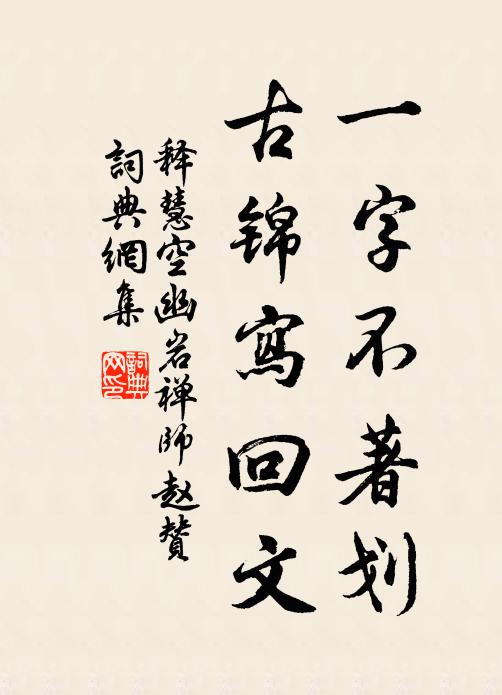 一字不著划
古锦寫回文
释慧空幽岩禅師赵贊
詞典網集
詞典网印